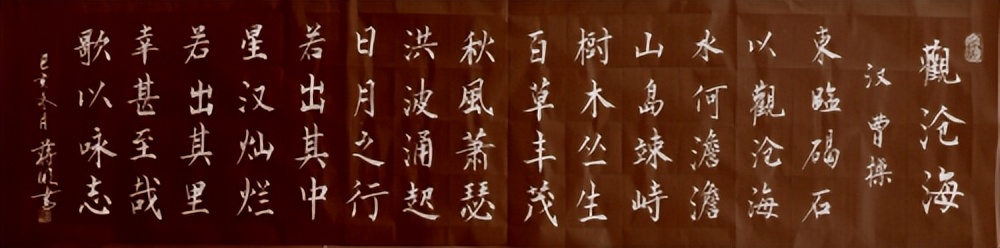 觀沧海
汉曹操
東臨碣石
以觀沧海
水何澹澹
山島竦峙
樹木丛生
百草丰茂
秋風萧瑟
洪波涌起
日月之行
若出其中
星汉灿烂
若出其里
幸甚至哉
歌以咏志
冬月
書